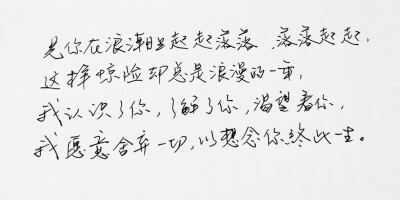 见你在浪潮里起起落落、落落起起，
这样惊险却总是浪漫的一章，
我认识了你，了解了你，渴望着你，
我愿意舍弃一切，以想念你终此一生。